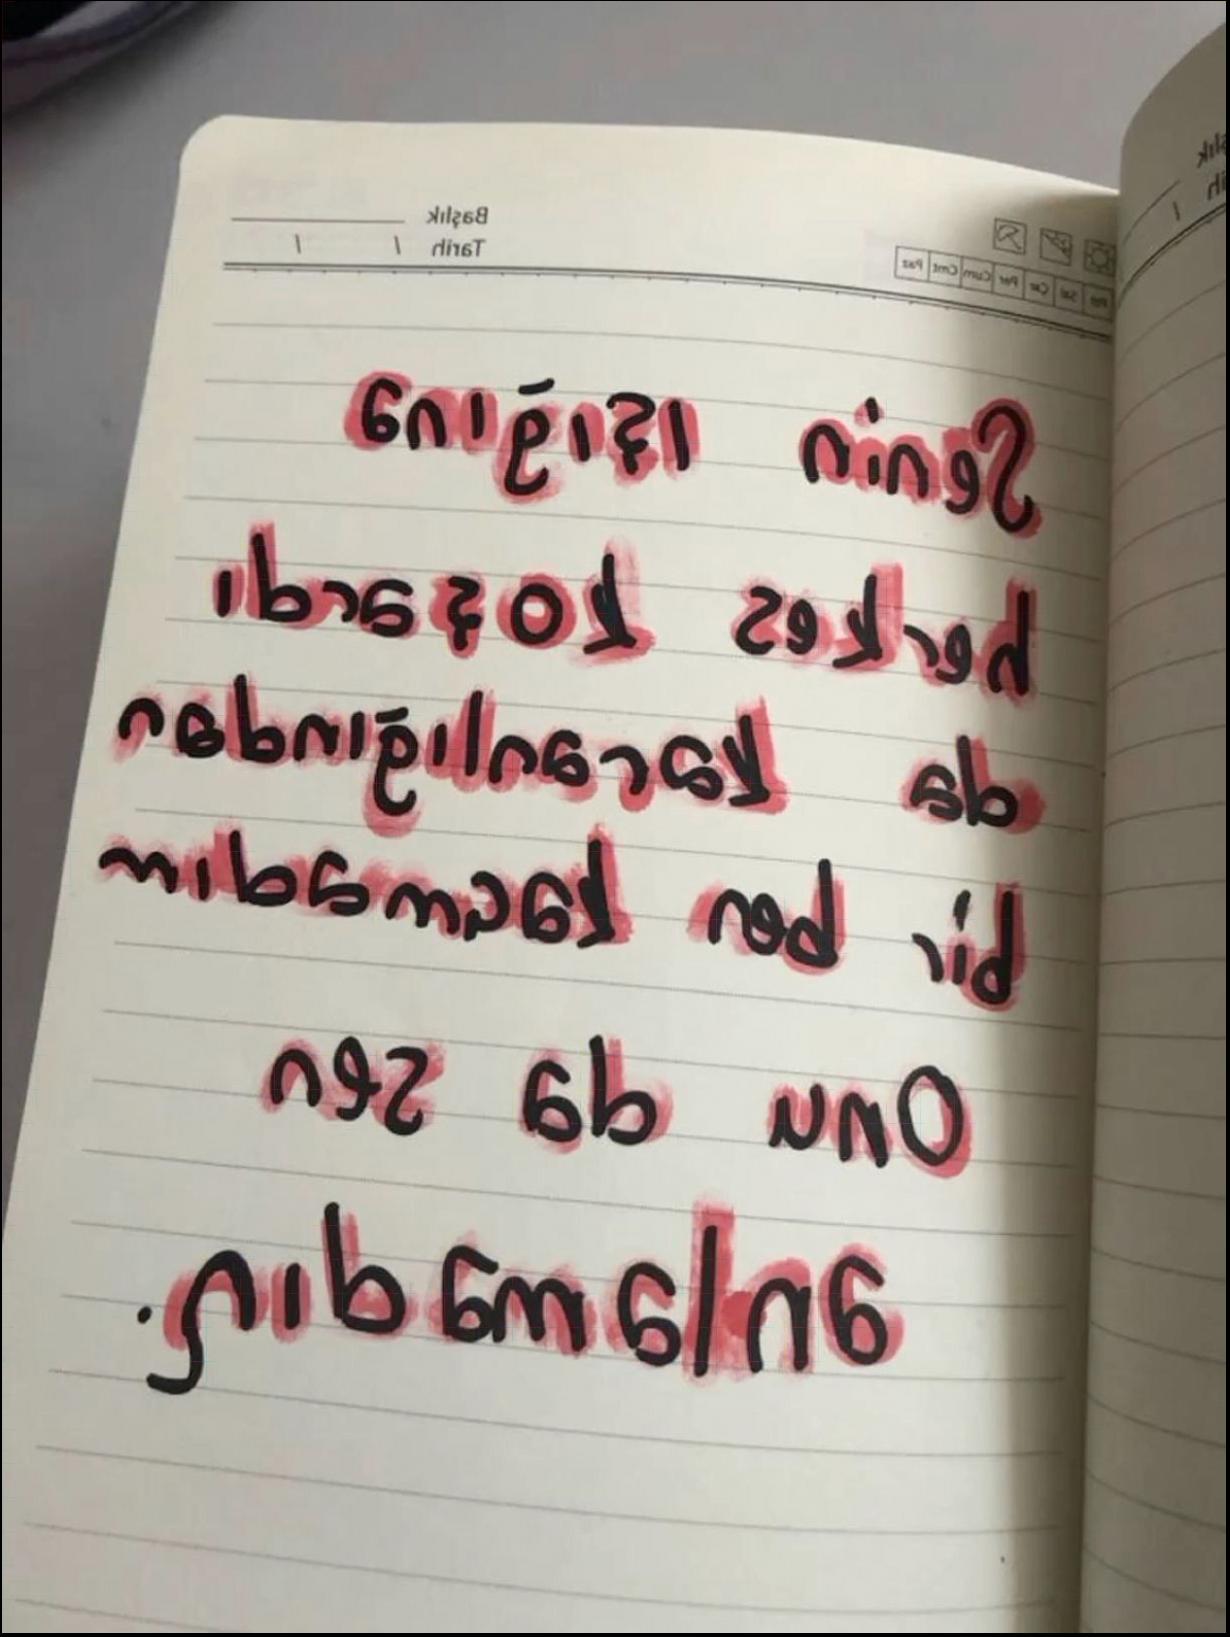 Başlık
Tarih / /
Pzt Sal Çar Per Cum Cmt Paz
Senin ışığına
herkes koşardı
da karanlığından
bir ben kaçmadım
Onu da sen
anlamadın.